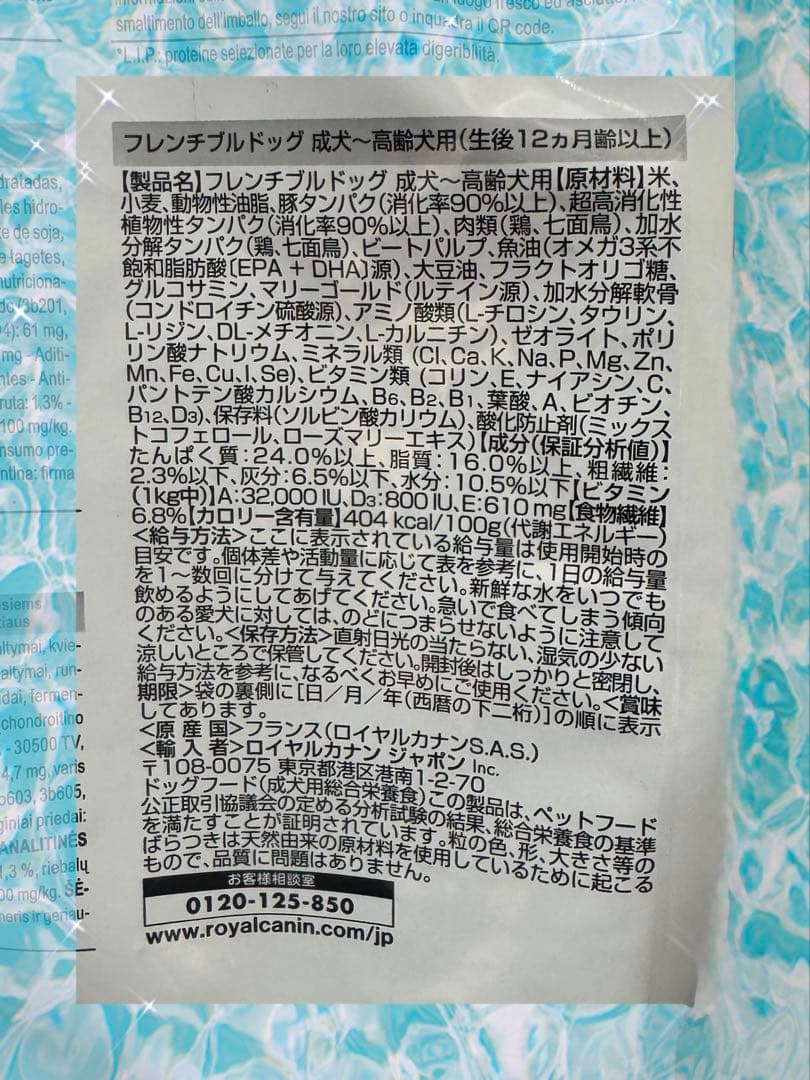 smaltimento dell'imballo, segui il nostro sito o inquadra il QR code.
*L.I.P.: proteine selezionate per la loro elevata digeribilità.
フレンチブルドッグ 成犬～高齢犬用(生後12ヵ月齢以上)
【製品名】フレンチブルドッグ 成犬～高齢犬用【原材料】米、
小麦、動物性油脂、豚タンパク(消化率90%以上)、超高消化性
植物性タンパク(消化率90%以上)、肉類(鶏、七面鳥)、加水
分解タンパク(鶏、七面鳥)、ビートパルプ、魚油(オメガ3系不
飽和脂肪酸〔EPA + DHA〕源)、大豆油、フラクトオリゴ糖、
グルコサミン、マリーゴールド(ルテイン源)、加水分解軟骨
(コンドロイチン硫酸源)、アミノ酸類(L-チロシン、タウリン、
L-リジン、DL-メチオニン、L-カルニチン)、ゼオライト、ポリ
リン酸ナトリウム、ミネラル類 (Cl,Ca,K,Na,P,Mg,Zn,
Mn,Fe,Cu,I,Se)、ビタミン類 (コリン、E、ナイアシン、C、
パントテン酸カルシウム、B6、B2、B1、葉酸、A、ビオチン、
B12、D3)、保存料(ソルビン酸カリウム)、酸化防止剤(ミックス
トコフェロール、ローズマリーエキス)【成分(保証分析値)】
たんぱく質：24.0%以上、脂質：16.0%以上、粗繊維：
2.3%以下、灰分：6.5%以下、水分：10.5%以下【ビタミン
(1kg中)】A：32,000 IU、D3：800 IU、E：610 mg【食物繊維】
6.8%【カロリー含有量】404 kcal/100g(代謝エネルギー)
<給与方法>ここに表示されている給与量は使用開始時の
目安です。個体差や活動量に応じて表を参考に、1日の給与量
を1～数回に分けて与えてください。新鮮な水をいつでも
飲めるようにしてあげてください。急いで食べてしまう傾向
のある愛犬に対しては、のどにつまらせないように注意して
ください。<保存方法>直射日光の当たらない、湿気の少ない
涼しいところで保管してください。開封後はしっかりと密閉し、
給与方法を参考に、なるべくお早めにご使用ください。<賞味
期限>袋の裏側に [日／月／年(西暦の下二桁)] の順に表示
してあります。
<原 産 国>フランス(ロイヤルカナンS.A.S.)
<輸 入 者>ロイヤルカナン ジャポン Inc.
〒108-0075 東京都港区港南1-2-70
ドッグフード(成犬用総合栄養食)この製品は、ペットフード
公正取引協議会の定める分析試験の結果、総合栄養食の基準
を満たすことが証明されています。粒の色、形、大きさ等の
ばらつきは天然由来の原材料を使用しているために起こる
もので、品質に問題はありません。
お客様相談室
0120-125-850
www.royalcanin.com/jp
dratadas,
les hidro-
te de soja,
nutriciona-
(3b201,
61 mg,
mg - Aditi-
ntes - Anti-
ruta: 1,3% -
100 mg/kg.
nsumo pre-
ntina: firma
siems
tiaus
altymai, kvie-
altymai, run-
idai, fermen-
chondroitino
- 30500 TV,
4,7 mg, varis
b603, 3b605,
ginlai priedai:
ANALITINĖS
1,3 %, riebalų
00 mg/kg. SĖ-
meris ir geriau-